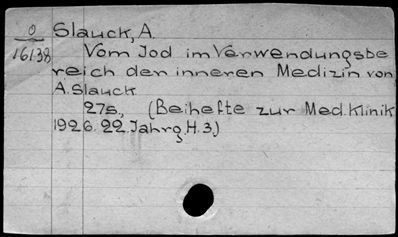 O Slauck, A.
16138 Vom Jod im Verwendungsbe
reich der inneren Medizin von
A. Slauck
27s, (Beihefte zur Med. Klinik
1926. 22. Jahrg. H. 3.)